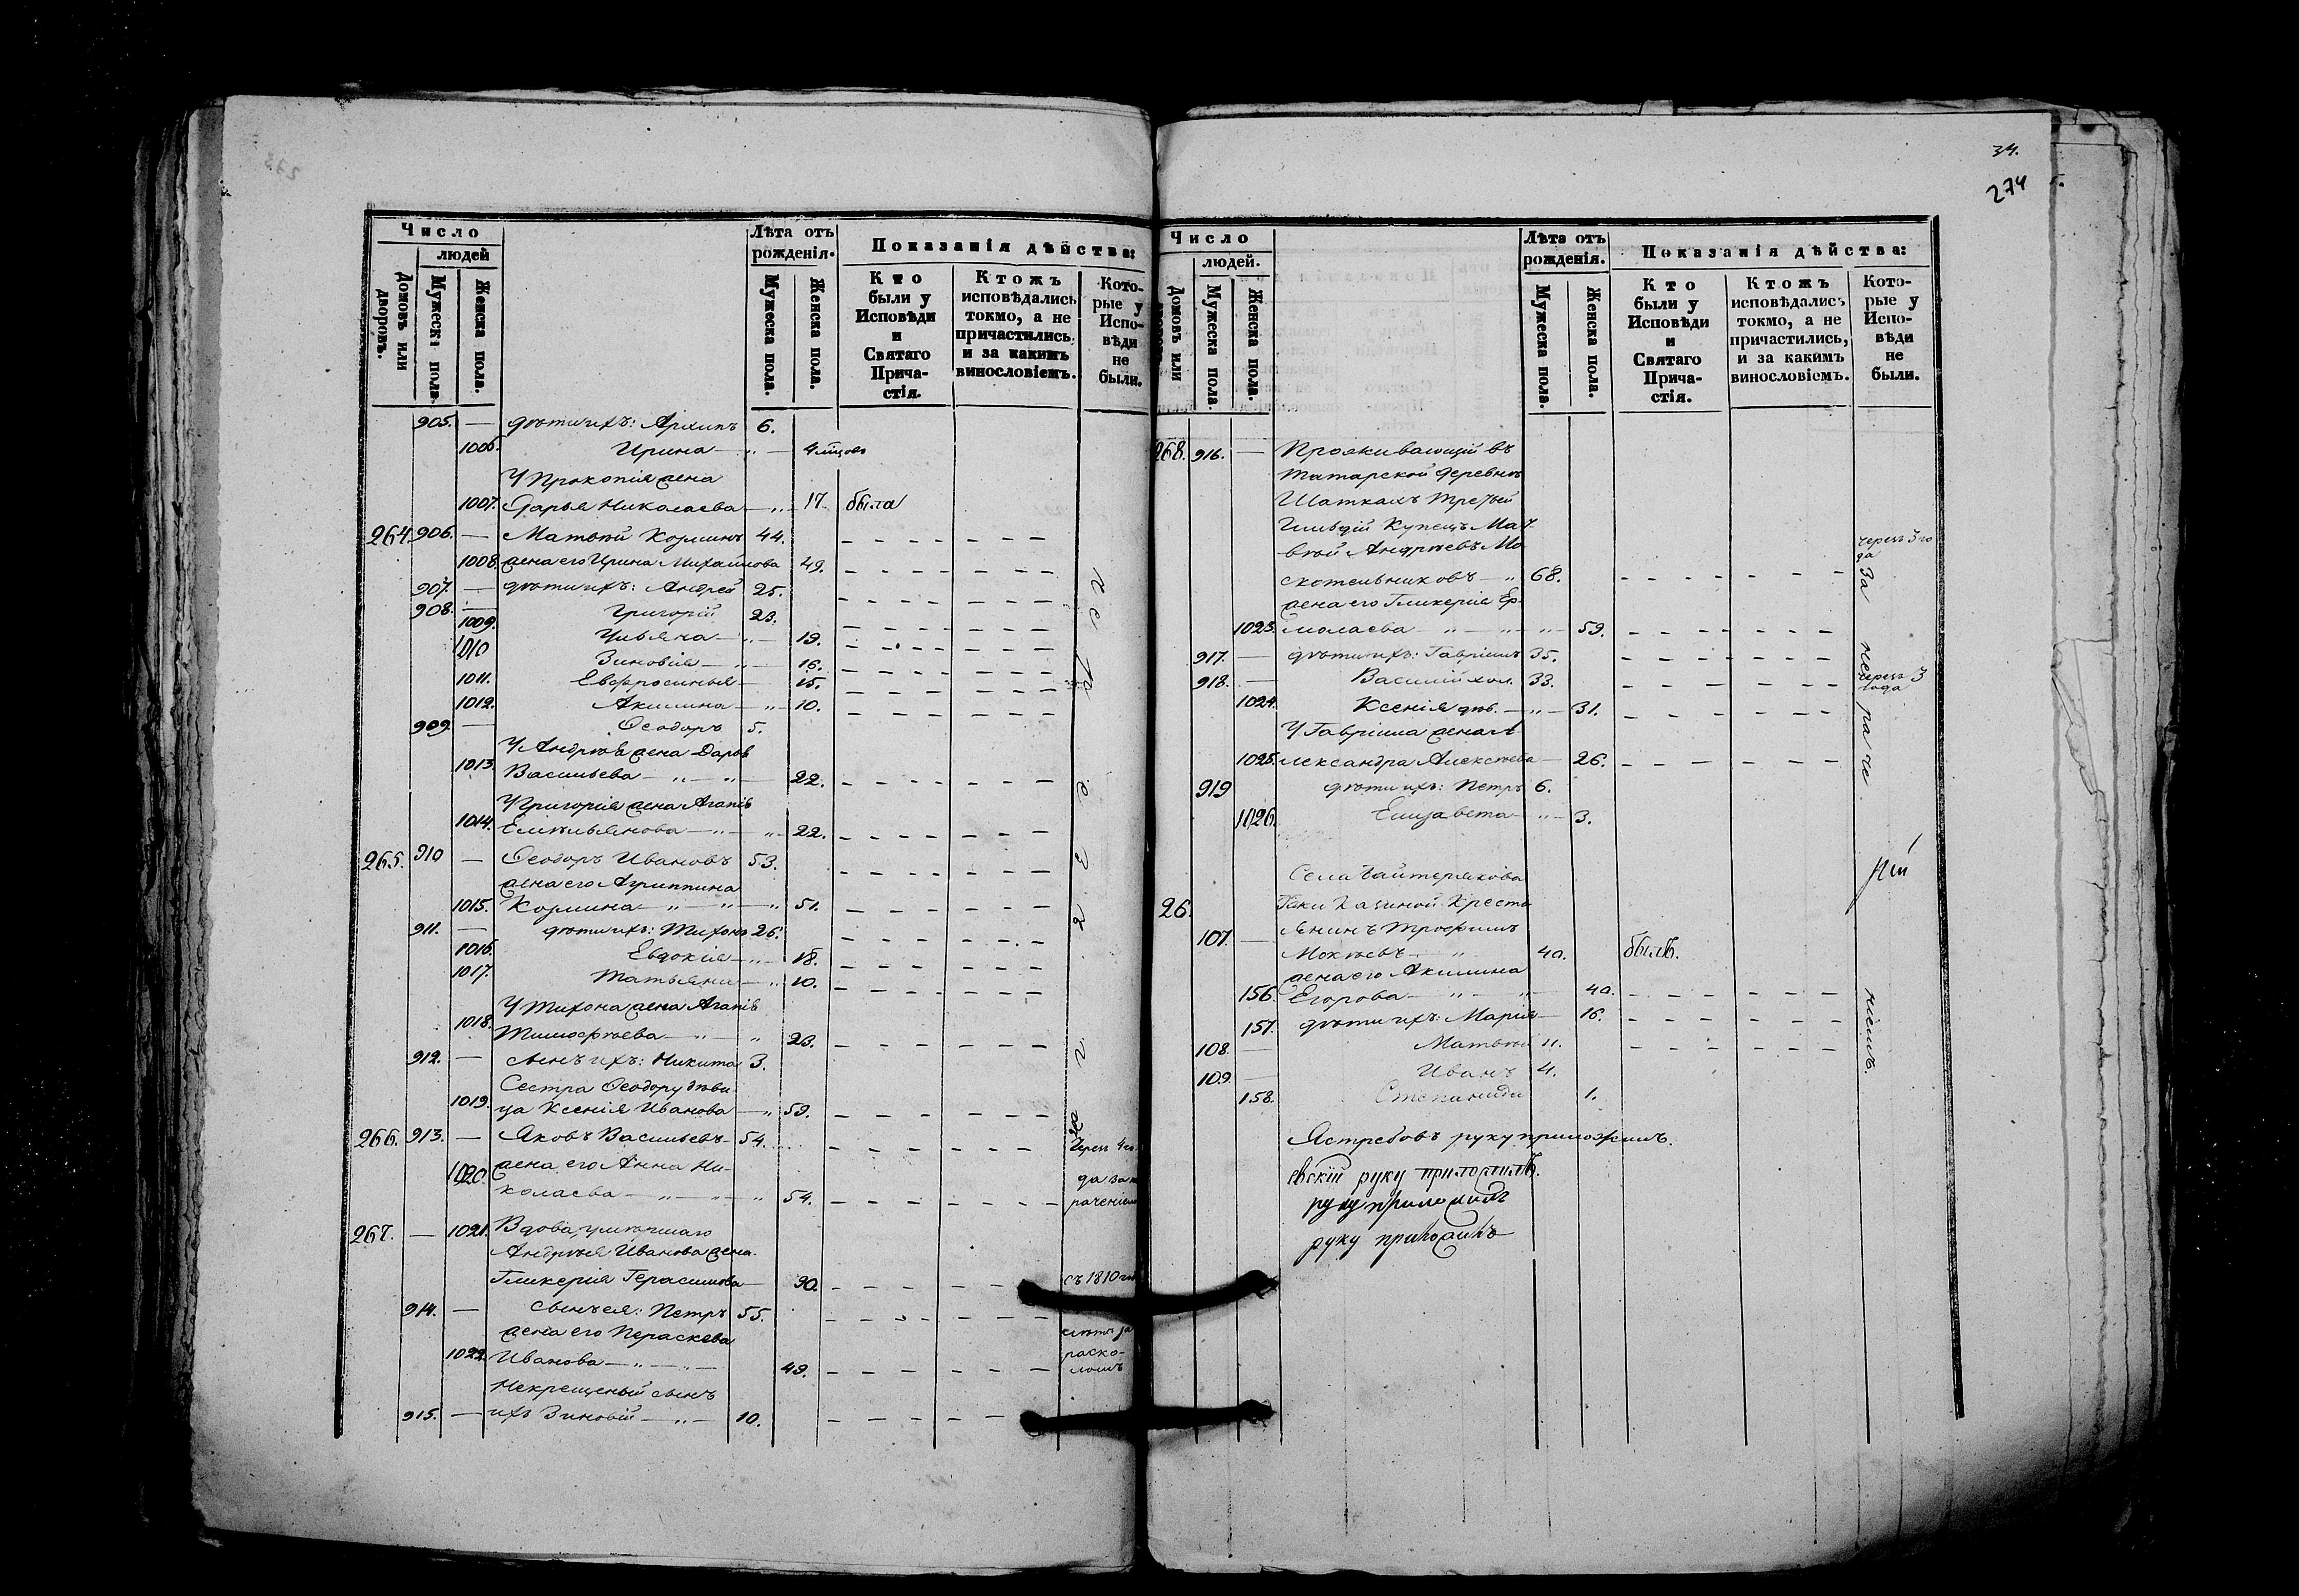 Число
людей
Домовъ или дворовъ.
Мужеска пола.
Женска пола.
Лѣта отъ рожденія.
Мужеска пола.
Женска пола.
Показанія дѣйства:
Кто были у Исповѣди и Святаго Причастія.
Ктожъ исповѣдались токмо, а не причастились и за какимъ винословіемъ.
Которые у Исповѣди не были.
905. — дѣти ихъ: Архипъ 6.
1006. Ирина — „ — 4 мѣсцовъ
У Прокопія жена
1007. Дарья Николаева — „ — 17. была
264. 906. — Матвѣй Корминъ 44.
1008. жена его Ирина Михайлова 49.
907. — дѣти ихъ: Андрей 25.
908. — Григорій 23.
1009. Ульяна — „ — 19.
1010 Зиновія — „ — 16.
1011. Евфросинья — 15.
1012. Акилина — „ — 10.
909. — Ѳеодоръ 5.
У Андрѣя жена Дарья
1013. Васильева — „ — „ — 22.
У Григорія жена Агапія
1014. Емельянова — „ — „ — 22.
265. 910 — Ѳеодоръ Ивановъ 53.
жена его Агриппина
1015. Кормина — „ — „ — „ 51.
911. — дѣти ихъ: Тихонъ 26.
1016. Евдокія — „ — 18.
1017. Татьяна — „ 10.
У Тихона жена Агапія
1018. Тимоѳѣева — „ — „ 23.
912. — сынъ ихъ: Никита 3.
Сестра Ѳеодору дѣви
1019. ца Ксенія Иванова — „ 59.
266. 913. — Яковъ Васильевъ — 54. Черезъ 4 го
1020. жена его Анна Ни- да за не
колаева — „ — „ — „ 54. раченіемъ
267. — 1021. Вдова, умершаго
Андрѣя Иванова жена
Гликерія Герасимова — 90. съ 1810 года
914. — сынъ ея: Петръ 55.
жена его Параскева
1022. Иванова — „ — „ — 49. раско-
ломъ
Некрещеный сынъ
915. — ихъ Зиновій — „ — 10.
34.
274
Число
людей.
Домовъ или
Мужеска пола.
Женска пола.
Лѣта отъ рожденія.
Мужеска пола.
Женска пола.
Показанія дѣйства:
Кто были у Исповѣди и Святаго Причастія.
Ктожъ исповѣдались токмо, а не причастились, и за какимъ винословіемъ.
Которые у Исповѣди не были.
268. 916. — Проживающій въ
татарской деревнѣ
Шаткахъ третьей
Гильдіи Купецъ Мат-
вѣй Андрѣевъ Мо черезъ 3 го
да
скотельниковъ — „ 68. за
жена его Гликерія Ер-
1023. молаева — „ — „ — „ — 59.
917. — дѣти ихъ: Гавріилъ 35. не
918. — Василій хол. 33. черезъ 3
года
1024. Ксенія дѣв. — „ — 31. ра
У Гавріила жена А
1025. лександра Алексѣева — 26. че
919 дѣти ихъ: Петръ 6.
1026. Елизавета — „ — 3.
Села Байтерякова
26. Казеной Кресть
107. — янинъ Трофимъ
Мокѣевъ — „ 40. былъ.
жена его Акилина
156. Егорова — „ — „ — 40. ніемъ.
157. дѣти ихъ: Марія — 16.
108. — Матвѣй 11.
109. — Иванъ 4.
158. Степанида 1.
Ястребовъ руку приложилъ.
евскій руку приложилъ.
руку приложилъ
руку приложилъ